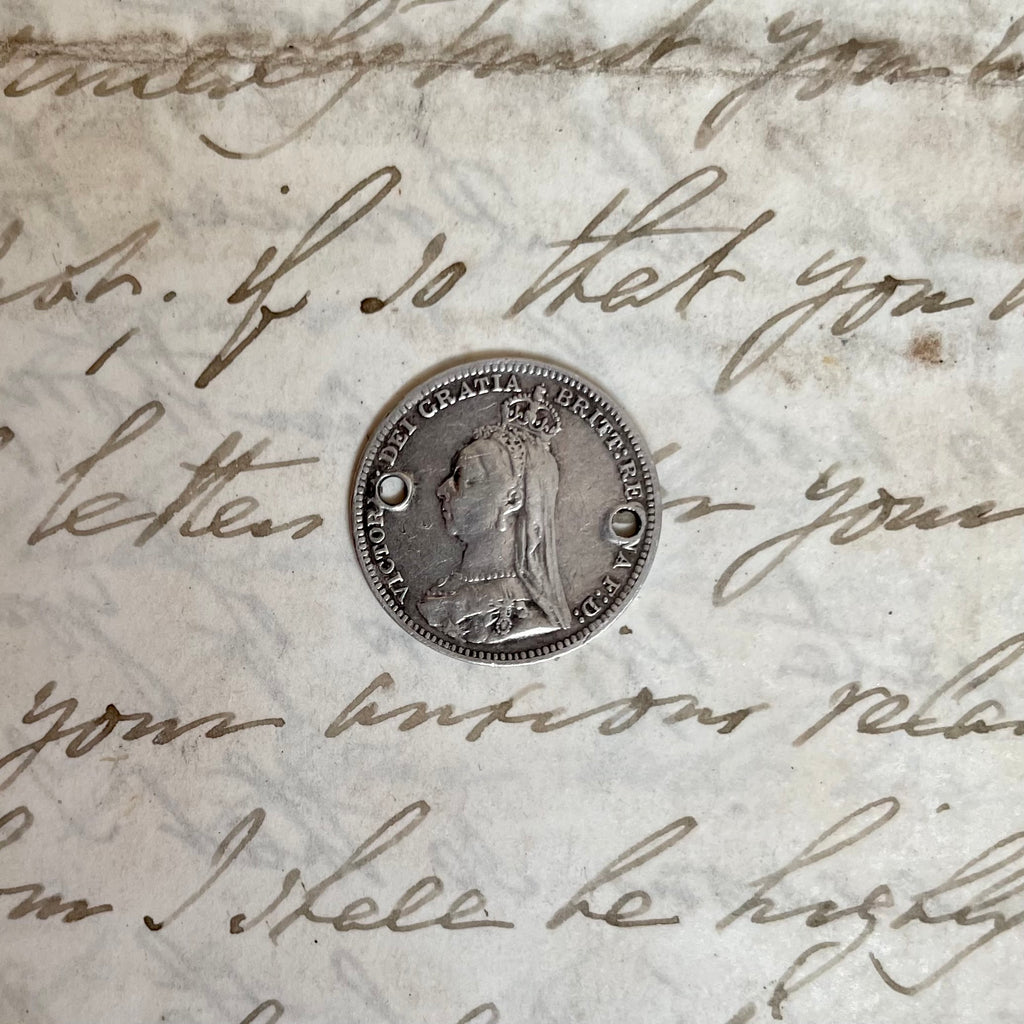 but you
if so that you
letter your
your anxious
I shall be highly
VICTORIA DEI GRATIA BRITT: REGINA F: D: